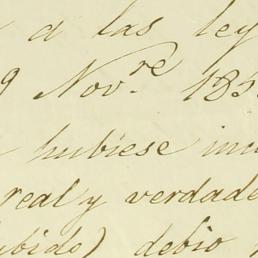 a las ley
9 Nov.re 185
hubiese inc
real y verdade
ibido) debio